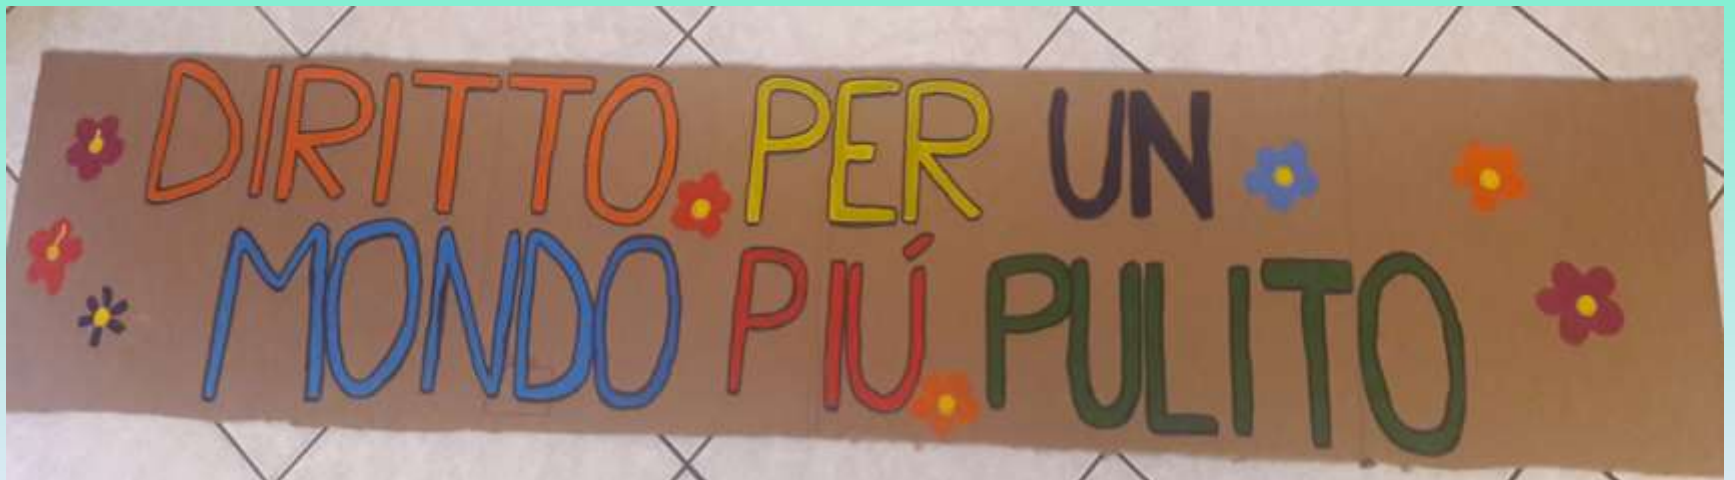 DIRITTO PER UN
MONDO PIÚ PULITO